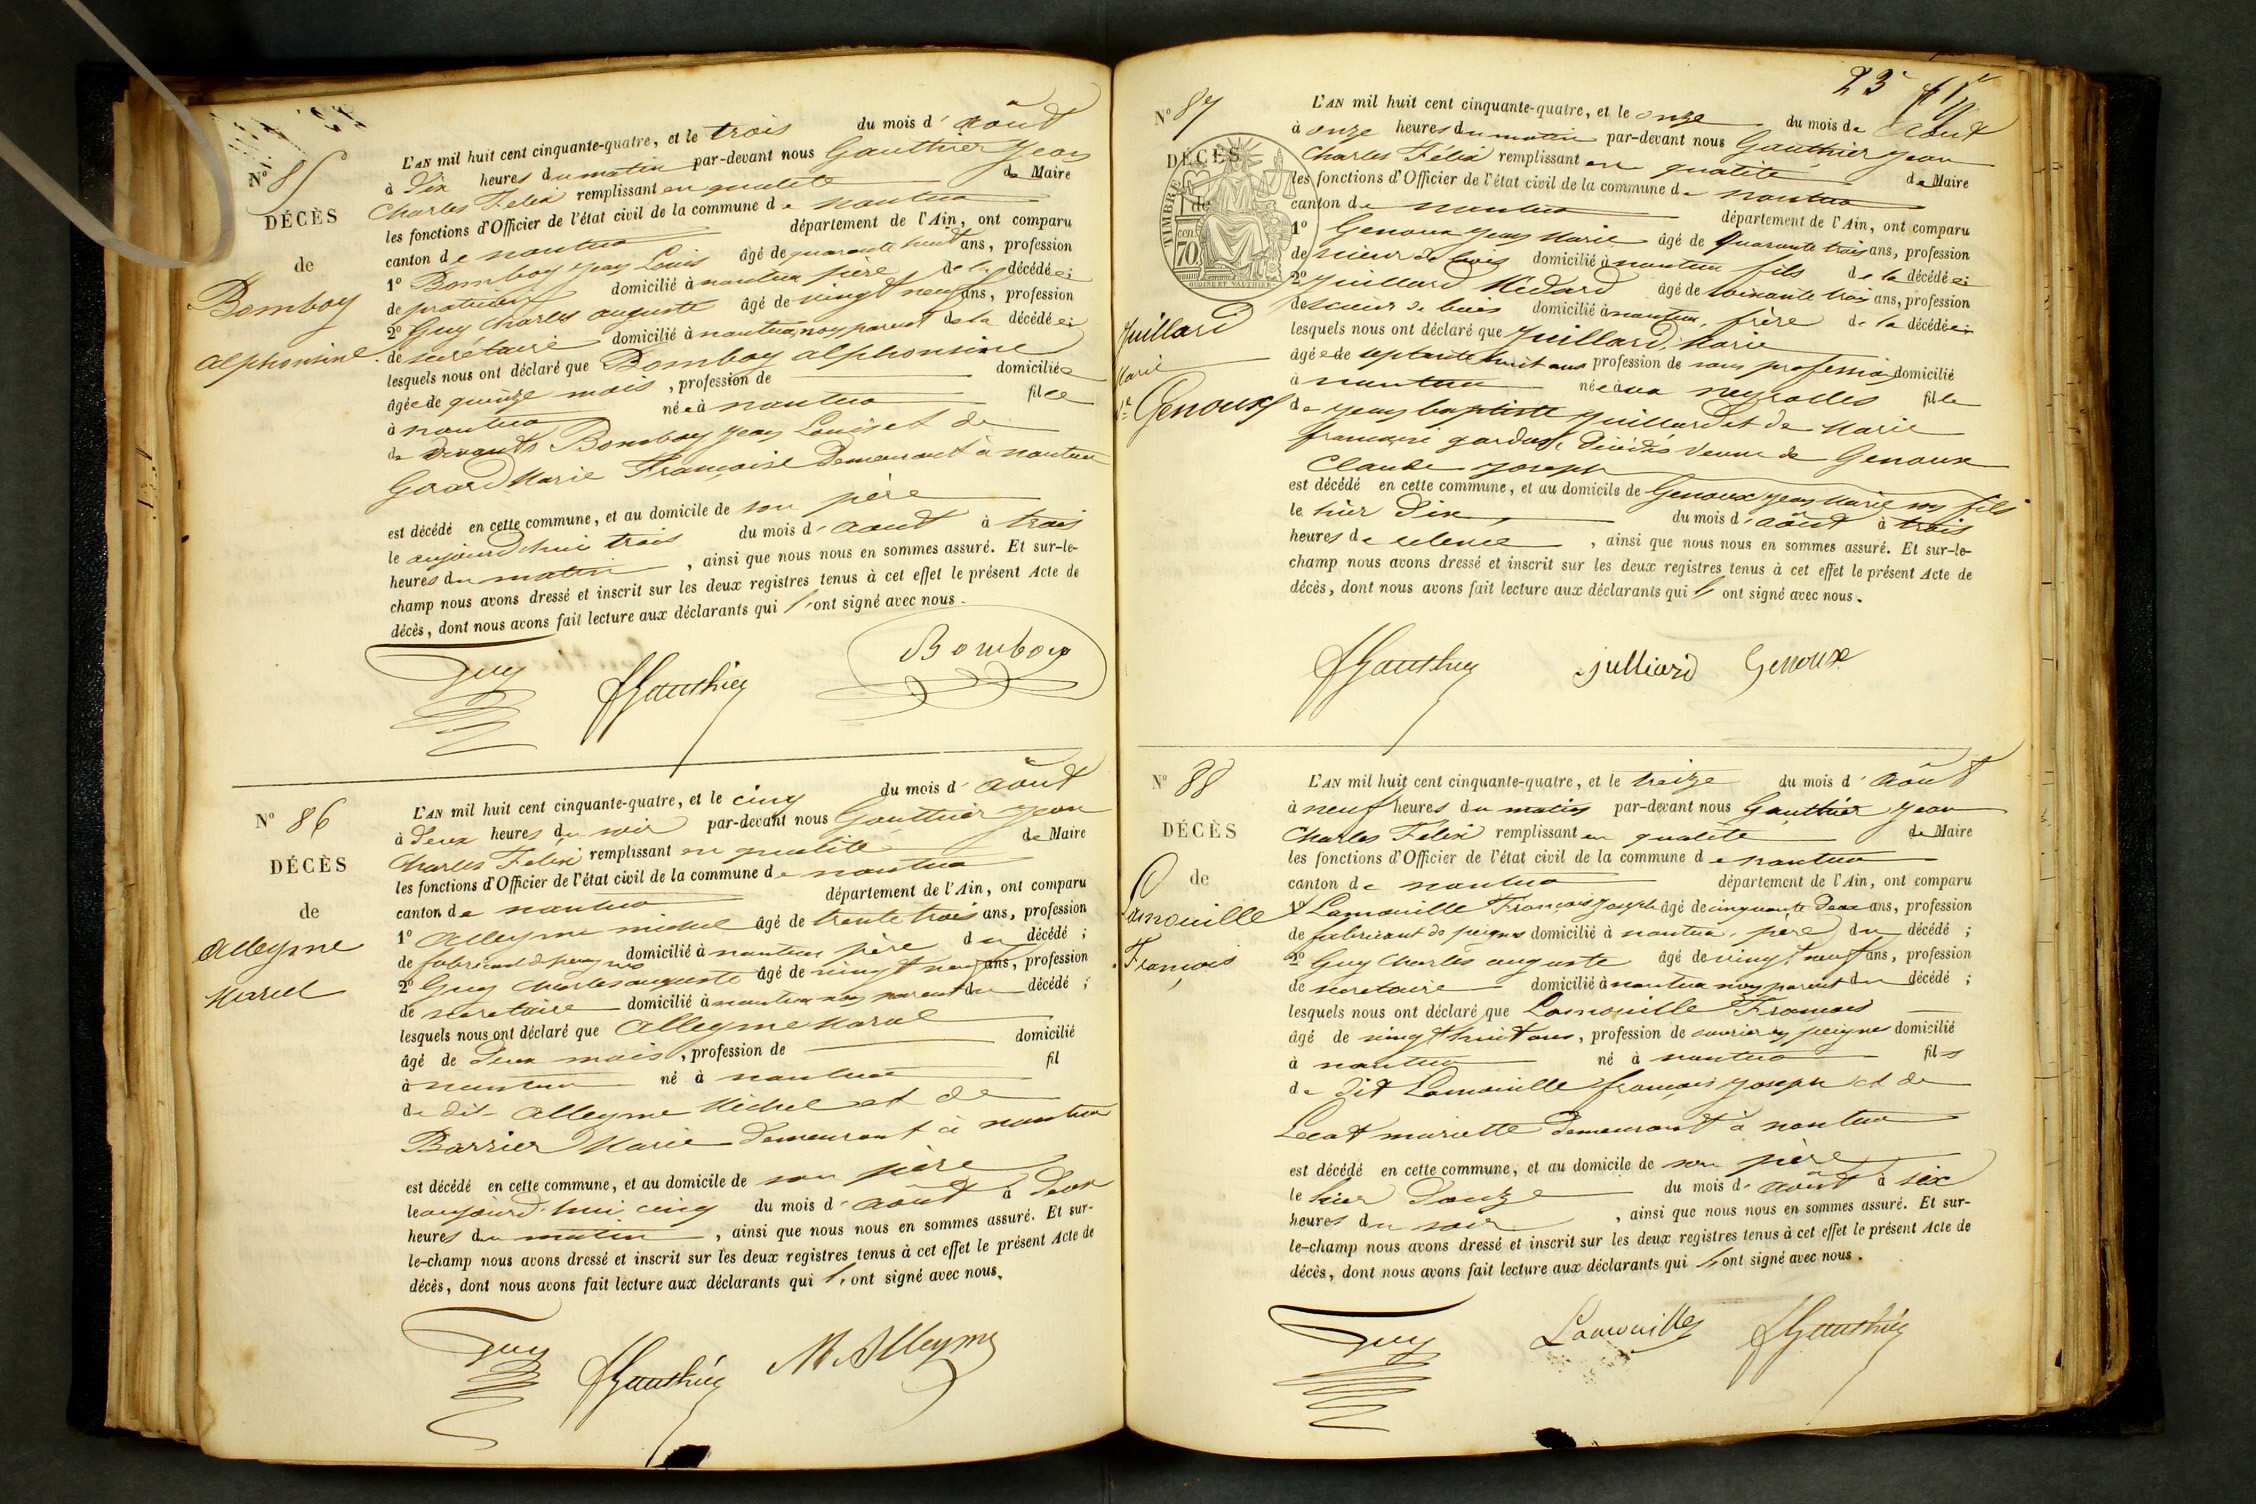 Nº 85
DÉCÈS
de
Bomboy
Alphonsine
L'AN mil huit cent cinquante-quatre, et le trois du mois d' août
à dix heures du matin par-devant nous Gauthier Jean
Charles Félix remplissant en qualité de Maire
les fonctions d'Officier de l'état civil de la commune de nantua
canton de nantua département de l'Ain, ont comparu
1º Bomboy Jean Louis âgé de quarante huit ans, profession
de domicilié à nantua père de la décédée;
2º Guy Charles auguste âgé de vingt neuf ans, profession
de secrétaire domicilié à nantua, non parent de la décédée;
lesquels nous ont déclaré que Bomboy alphonsine
âgée de quinze mois, profession de domiciliée
à nantua née à nantua fille
de vivants Bomboy Jean Louis et de
Girard Marie Françoise demeurant à nantua
est décédé en cette commune, et au domicile de son père
le aujourd'hui trois du mois d' août à trois
heures du matin, ainsi que nous nous en sommes assuré. Et sur-le-
champ nous avons dressé et inscrit sur les deux registres tenus à cet effet le présent Acte de
décès, dont nous avons fait lecture aux déclarants qui l'ont signé avec nous.
Guy Gauthier Bomboy
Nº 86
DÉCÈS
de
Alleyme
Marcel
L'AN mil huit cent cinquante-quatre, et le cinq du mois d' août
à deux heures du soir par-devant nous Gauthier Jean
Charles Félix remplissant en qualité de Maire
les fonctions d'Officier de l'état civil de la commune de nantua
canton de nantua département de l'Ain, ont comparu
1º Alleyme michel âgé de trente trois ans, profession
de fabricant de peignes domicilié à nantua père du décédé;
2º Guy Charles auguste âgé de vingt neuf ans, profession
de secretaire domicilié à nantua non parent du décédé;
lesquels nous ont déclaré que Alleyme
âgé de deux mois, profession de domicilié
à nantua né à nantua fil
de dit Alleyme Michel et de
Barrier Marie demeurant à nantua
est décédé en cette commune, et au domicile de son père
le aujourd'hui cinq du mois d' août à deux
heures du matin, ainsi que nous nous en sommes assuré. Et sur-
le-champ nous avons dressé et inscrit sur les deux registres tenus à cet effet le présent Acte de
décès, dont nous avons fait lecture aux déclarants qui l'ont signé avec nous.
Guy Gauthier M. Alleyme
23
Nº 87
DÉCÈS
de
TIMBRE
70 cen
Juillard
Marie
Ve Genoux
L'AN mil huit cent cinquante-quatre, et le onze du mois de Août
à onze heures du matin par-devant nous Gauthier Jean
Charles Félix remplissant en qualité de Maire
les fonctions d'Officier de l'état civil de la commune de nantua
canton de nantua département de l'Ain, ont comparu
1º Genoux Jean Marie âgé de Quarante trois ans, profession
de scieur de bois domicilié à nantua fils de la décédée;
2º Juillard Médard âgé de soixante trois ans, profession
de scieur de bois domicilié à nantua, frère de la décédée;
lesquels nous ont déclaré que Juillard Marie
âgée de septante huit ans profession de sans profession domicilié
à nantua née à neyrolles fille
de Jean baptiste Juillard et de Marie
françoise décédés veuve de Genoux
Claude Joseph
est décédé en cette commune, et au domicile de Genoux Jean Marie son fils
le hier dix du mois d' août à trois
heures de, ainsi que nous nous en sommes assuré. Et sur-le-
champ nous avons dressé et inscrit sur les deux registres tenus à cet effet le présent Acte de
décès, dont nous avons fait lecture aux déclarants qui l'ont signé avec nous.
Gauthier julliard Genoux
Nº 88
DÉCÈS
de
Lamouille
François
L'AN mil huit cent cinquante-quatre, et le treize du mois d' Août
à neuf heures du matin par-devant nous Gauthier Jean
Charles Félix remplissant en qualité de Maire
les fonctions d'Officier de l'état civil de la commune de nantua
canton de nantua département de l'Ain, ont comparu
1º Lamouille François Joseph âgé de cinquante deux ans, profession
de fabricant de peignes domicilié à nantua, père du décédé;
2º Guy Charles auguste âgé de vingt neuf ans, profession
de secretaire domicilié à nantua non parent du décédé;
lesquels nous ont déclaré que Lamouille François
âgé de vingt huit ans, profession de ouvrier en peignes domicilié
à nantua né à nantua fils
de dit Lamouille françois Joseph et de
Lecat mariette demeurant à nantua
est décédé en cette commune, et au domicile de son père
le hier douze du mois d' août à six
heures du soir, ainsi que nous nous en sommes assuré. Et sur-
le-champ nous avons dressé et inscrit sur les deux registres tenus à cet effet le présent Acte de
décès, dont nous avons fait lecture aux déclarants qui l'ont signé avec nous.
Guy Lamouille Gauthier